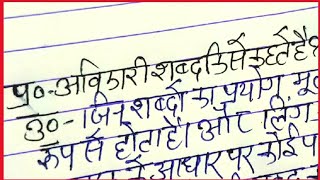 प्र०- अविकारी शब्द किसे कहते हैं?
उ०- जिन शब्दों का प्रयोग मूल
रूप से होता है। और लिंग
के आधार पर कोई प